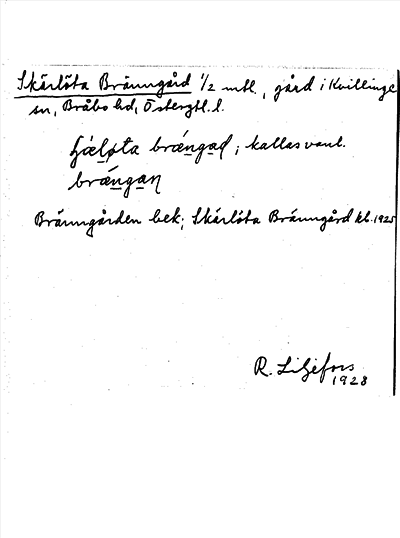 Skärlöta Bränngård 1/2 mtl., gård i Kvillinge
sn, Bråbo hd, Östergtl. l.
brǽngad; kallas vanl.
brǽngan
Bränngården bek; Skärlöta Bränngård kb. 1925
R. Liljefors
1928